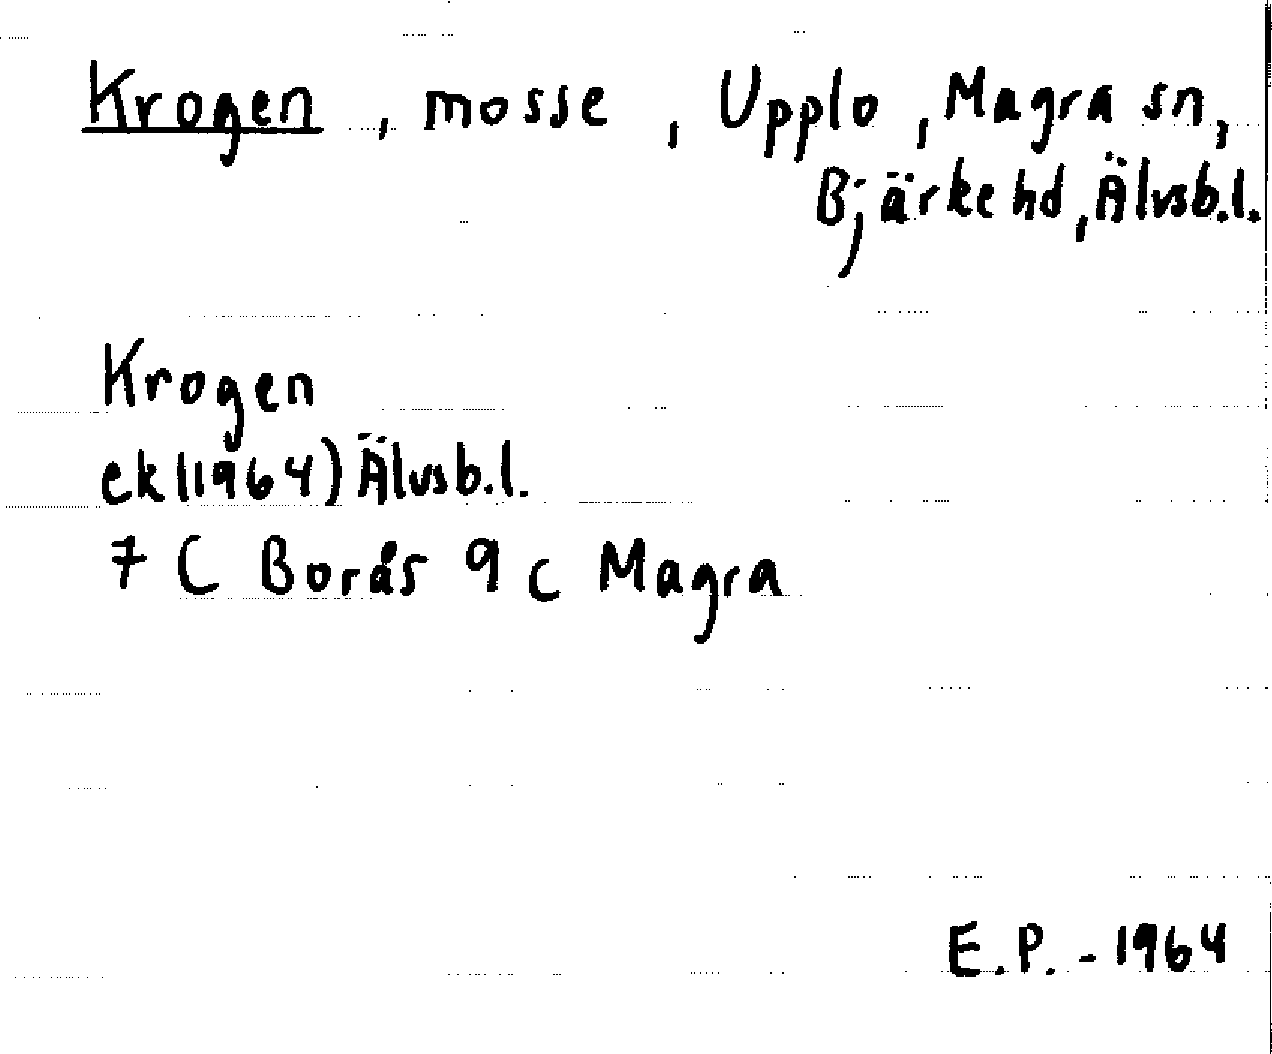 Krogen, mosse, Upplo, Magra sn,
Bjärke hd, Älvsb.l.
Krogen
ek(1964) Älvsb.l.
7 C Borås 9 c Magra
E.P. - 1964